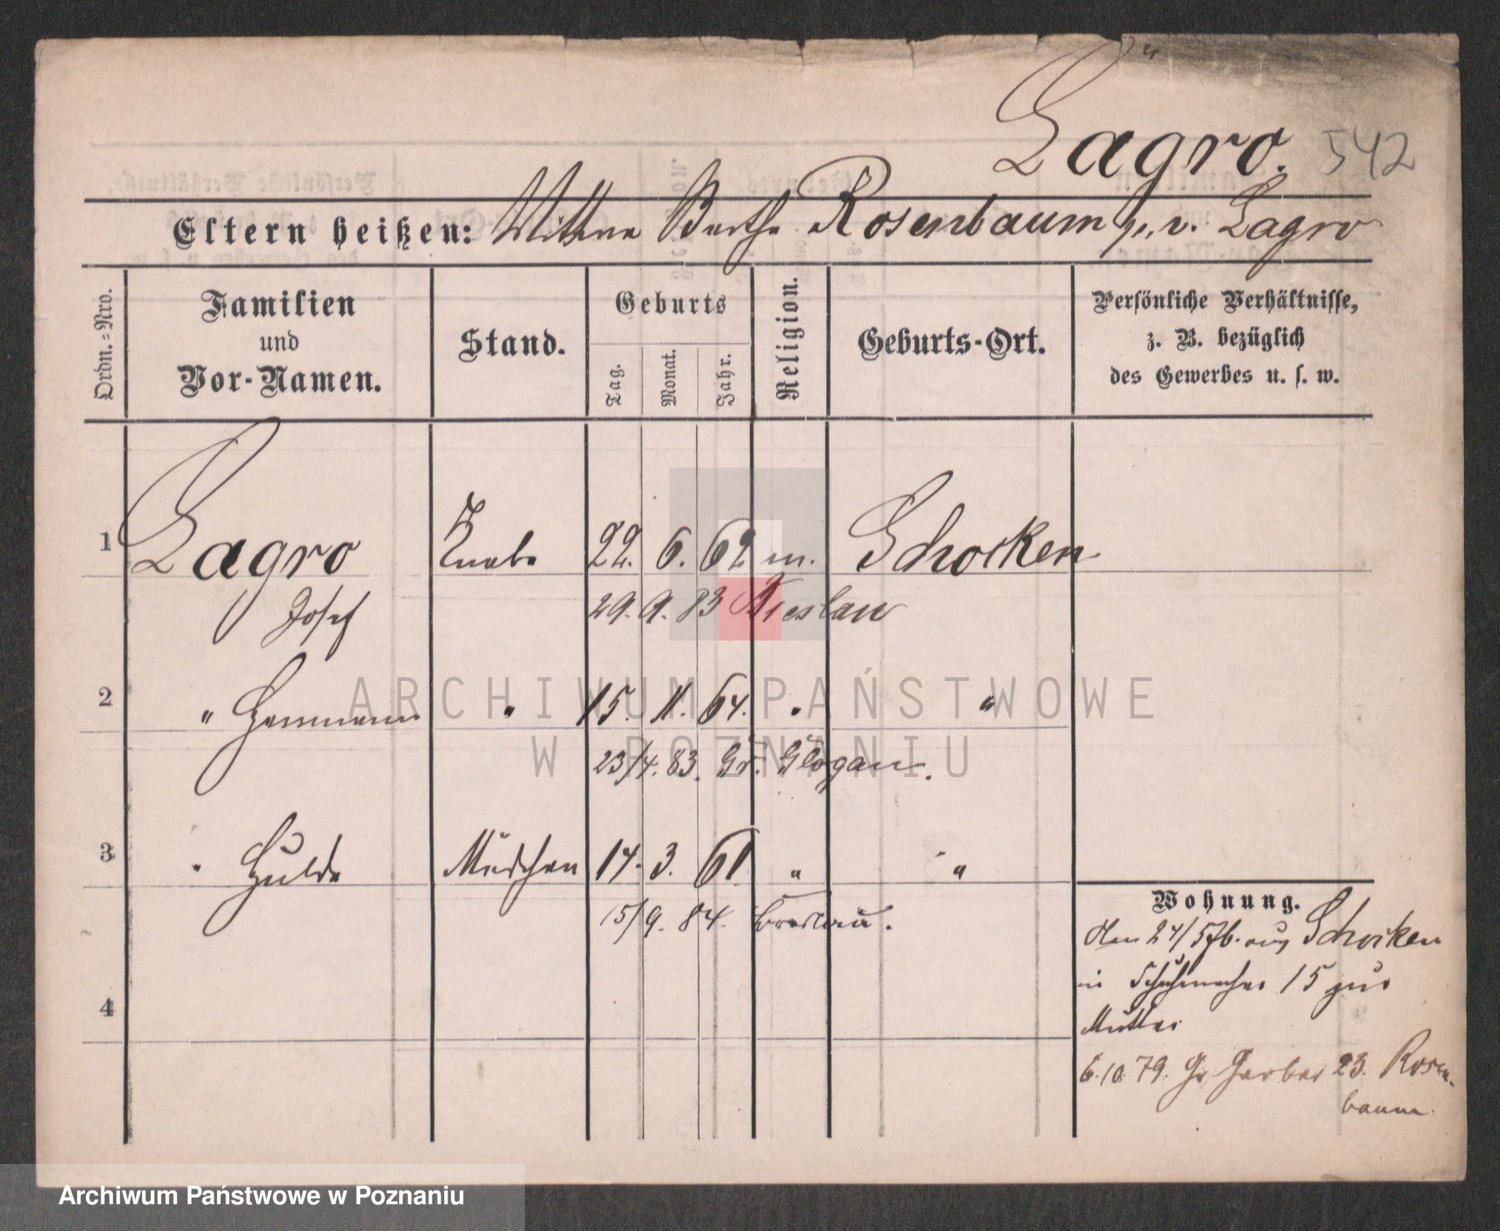 Lagro. 542
Eltern heißen: Wittwe Bertha Rosenbaum gw. v. Lagro
Ordn.-Nro.
Familien
und
Vor-Namen.
Stand.
Geburts
Tag. Monat. Jahr.
Religion.
Geburts-Ort.
Persönliche Verhältnisse,
z. B. bezüglich
des Gewerbes u. s. w.
1 Lagro Knabe 22. 6. 62 m. Schocken
Josef 29. 9. 83 Breslau
2 " Hermann " 15. 11. 64. " "
23/4. 83. Gr. Glogau.
3 " Hulda Mädchen 14. 3. 61 " "
15/9. 84. Breslau.
4
Wohnung.
den 24/5 76. aus Schocken
in Schuhmacher 15 zur
Mutter
6.10.79. Gr Gerber 23. Rosen-
baum.
ARCHIWUM PAŃSTWOWE
W POZNANIU
Archiwum Państwowe w Poznaniu